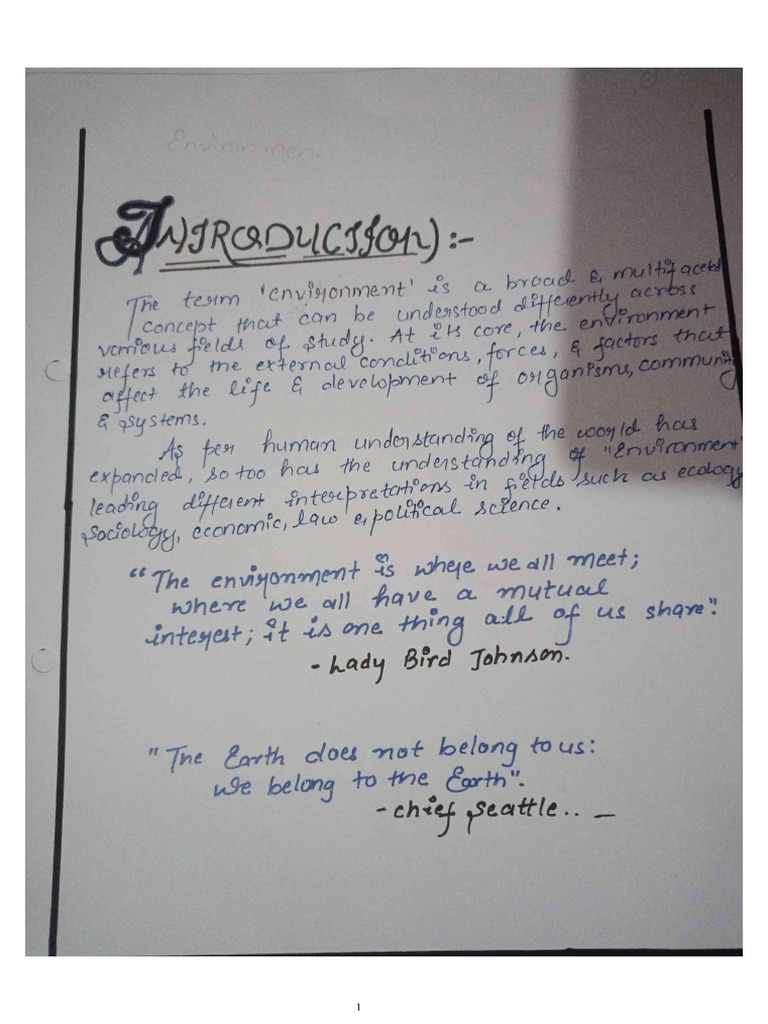 Environmen
INTRODUCTION):-
The term 'environment' is a broad & multifaceted
concept that can be understood differently across
various fields of study. At its core, the environment
refers to the external conditions, forces, & factors that
affect the life & development of organisms, communiti
& systems.
As per human understanding of the world has
expanded, so too has the understanding of "Environment"
leading different interpretations in fields such as ecology
sociology, economic, law & political science.
"The environment is where we all meet;
where we all have a mutual
interest; it is one thing all of us share".
- Lady Bird Johnson.
"The Earth does not belong to us:
we belong to the Earth".
- Chief Seattle.. _
1